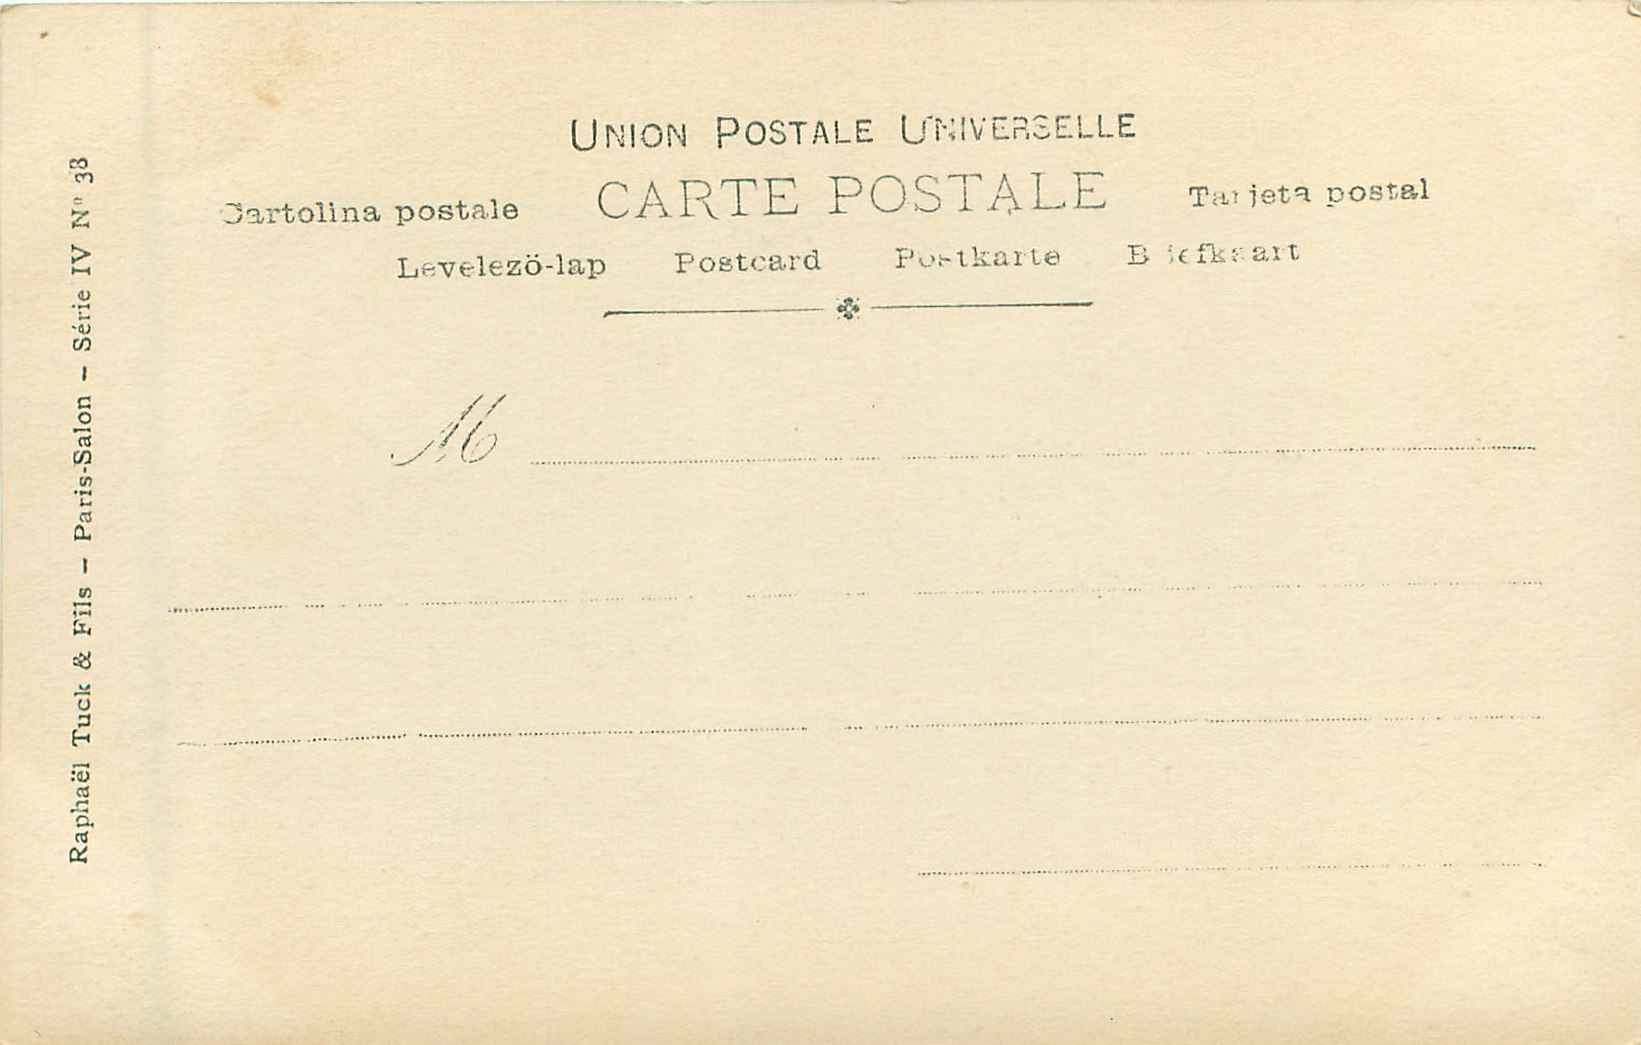 UNION POSTALE UNIVERSELLE
CARTE POSTALE
Cartolina postale
Tarjeta postal
Levelezö-lap Postcard Postkarte Briefkaart
M
Raphaël Tuck & Fils – Paris-Salon – Série IV N° 38